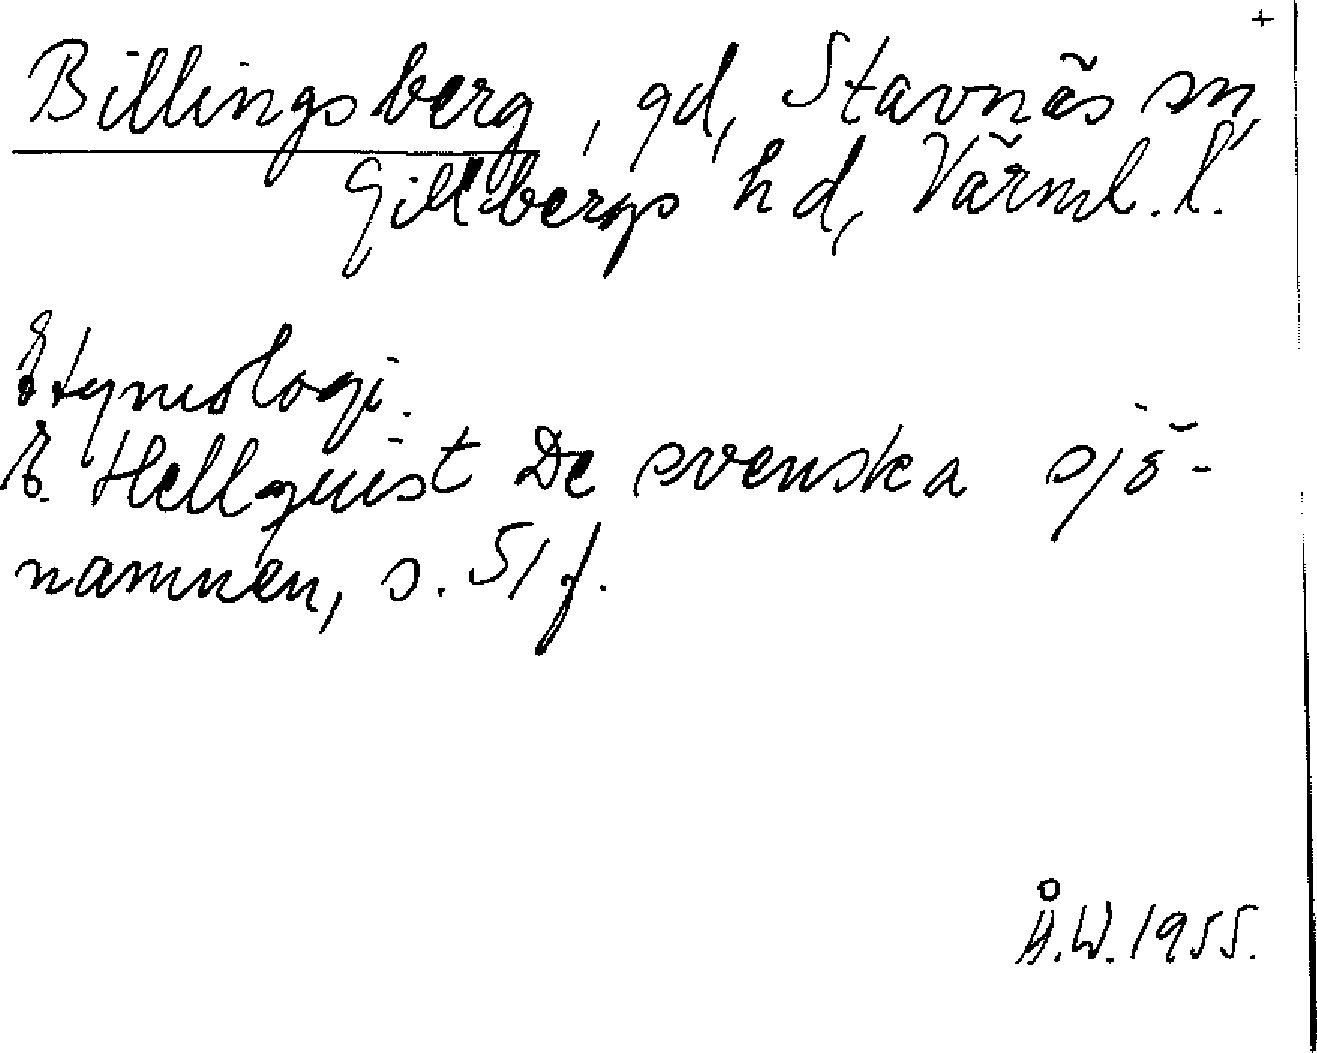 +
Billingsberg, gd, Stavnäs sn,
Gillbergs hd, Värml. l.
Etymologi.
E. Hellquist De svenska sjö-
namnen, s. 51 f.
Å.W. 1955.